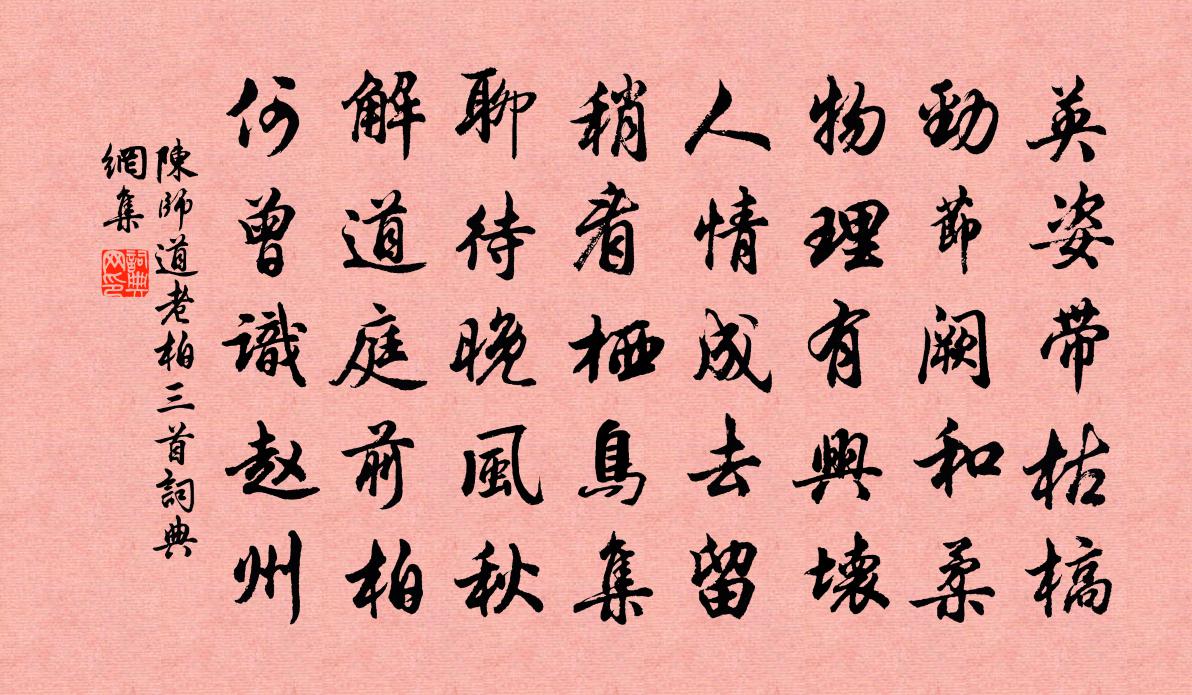 英姿帶枯槁
勁節闕和柔
物理有興壞
人情成去留
稍看栖鳥集
聊待晚風秋
解道庭前柏
何曾識趙州
陳師道老柏三首詞典
網集
詞典網印